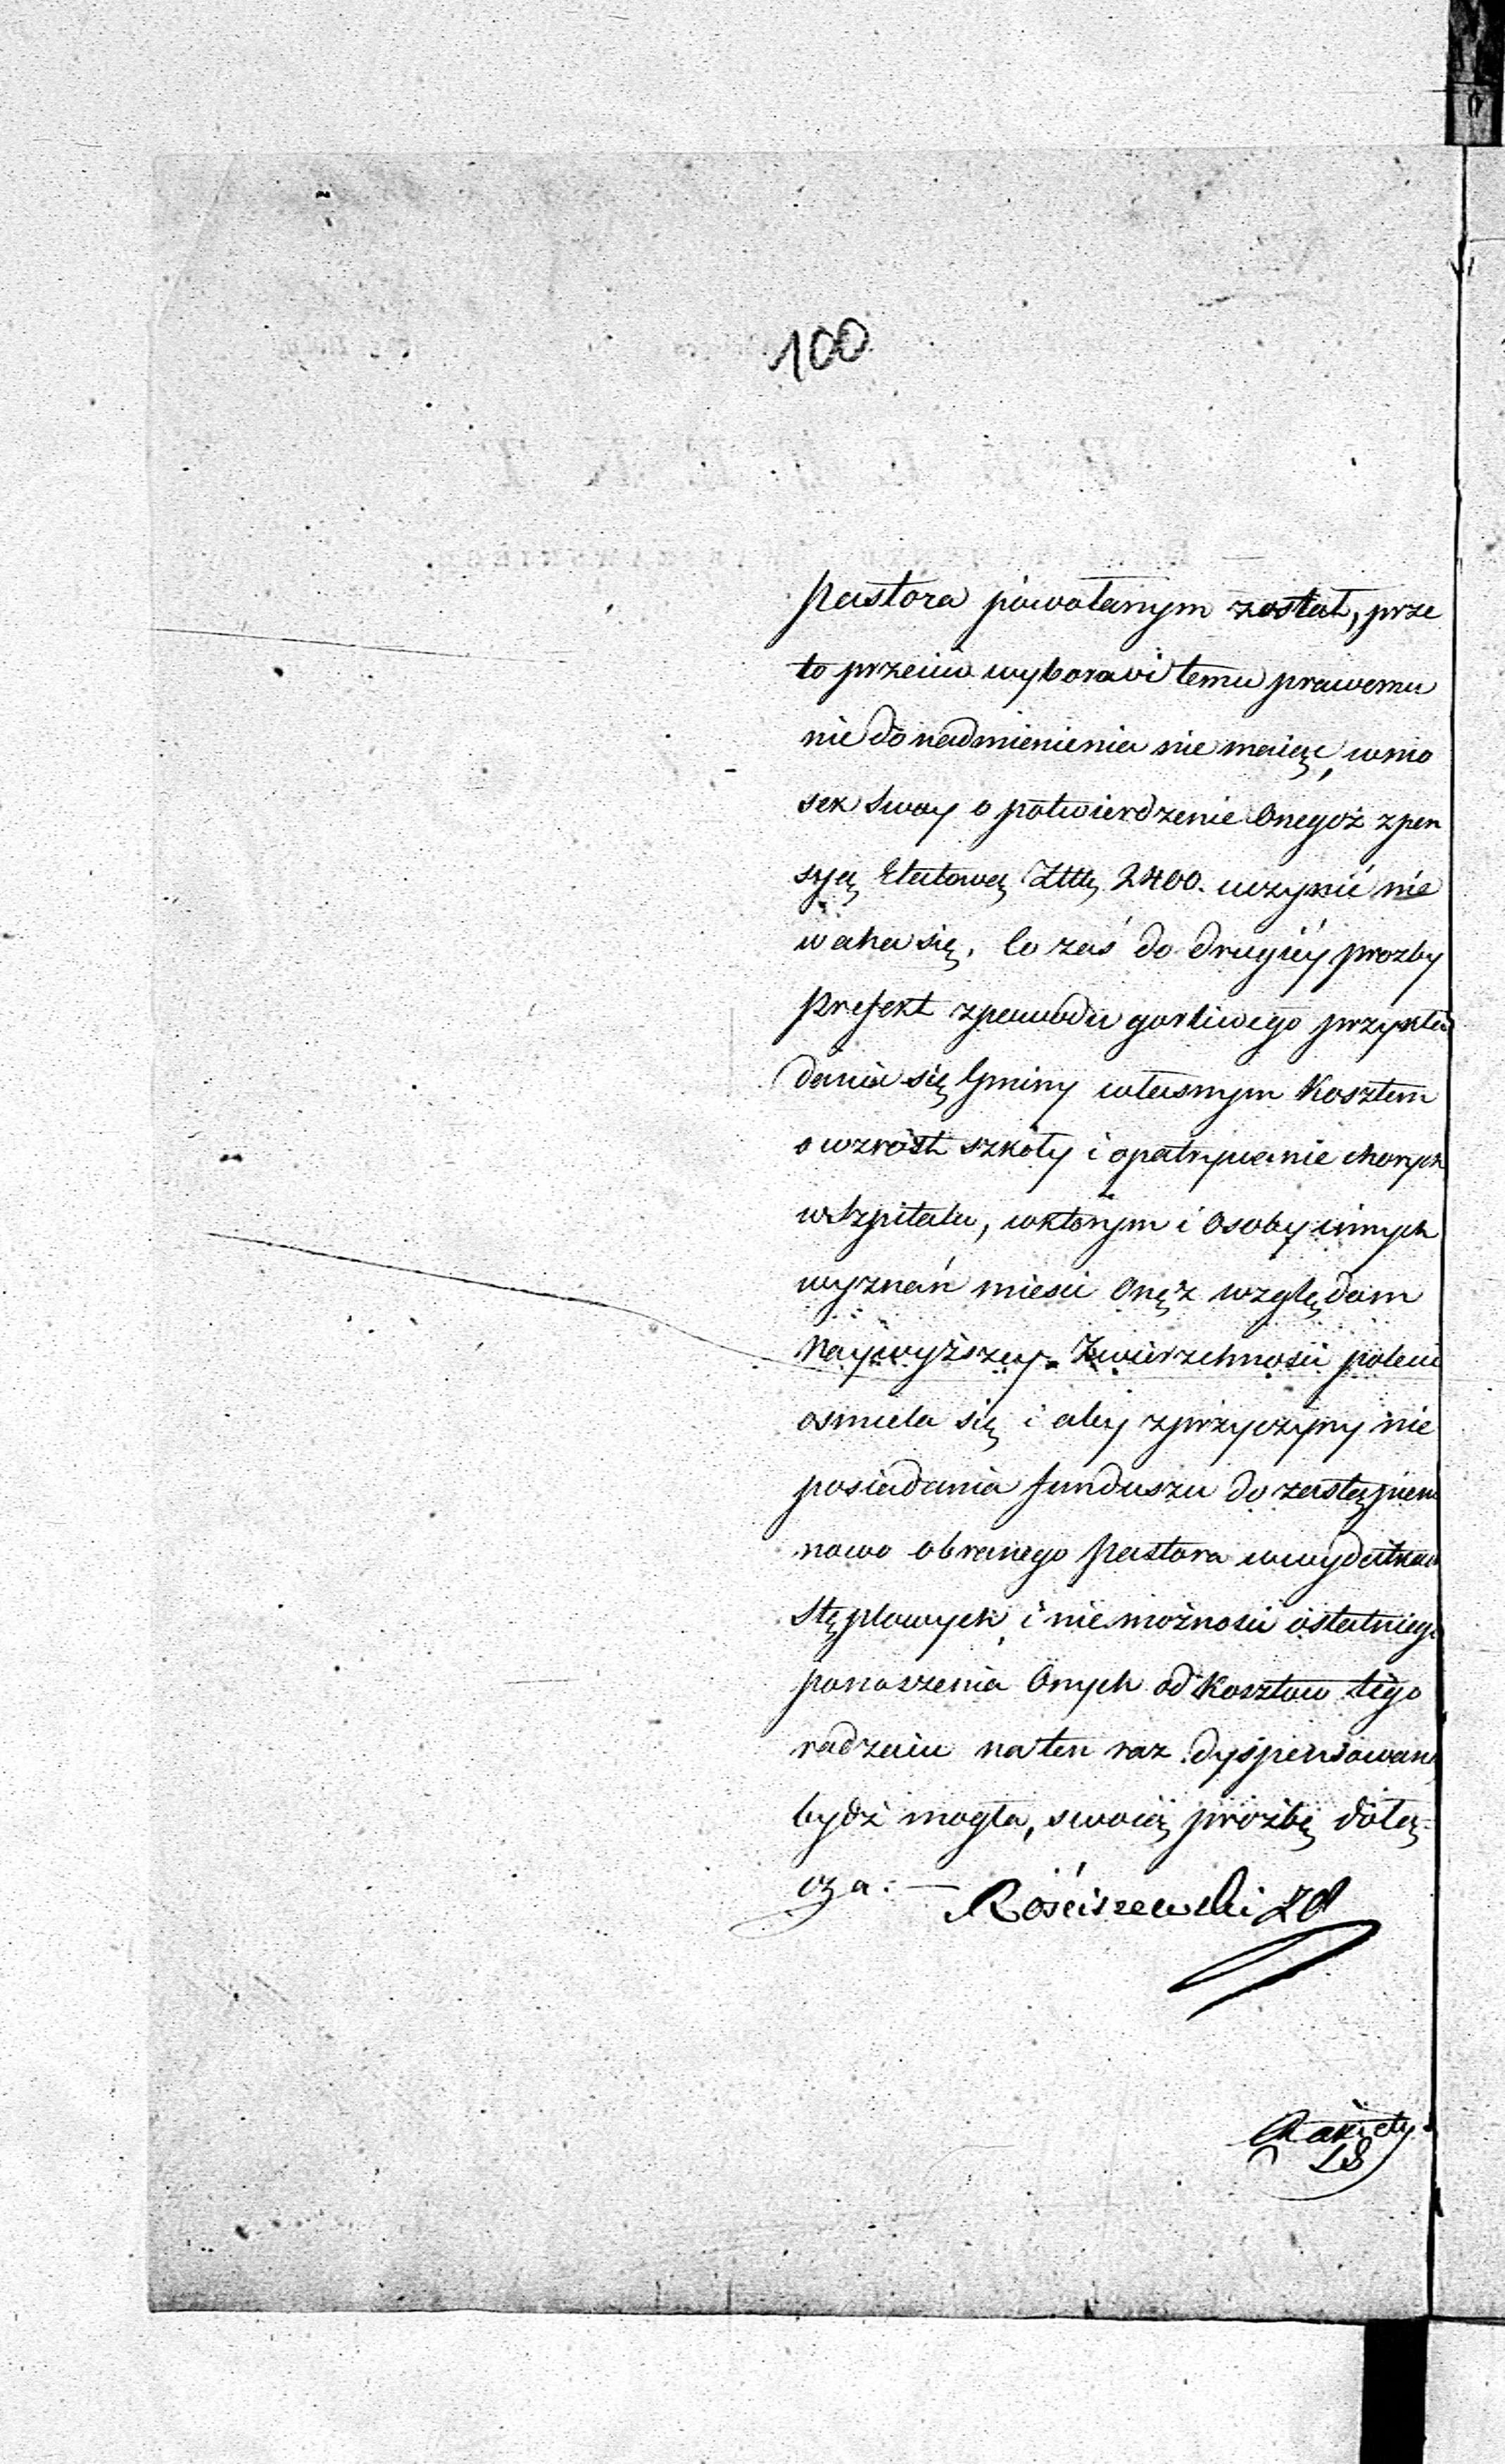 100
Pastora powołanym został, prze
to przeciw wyborowi temu prawemu
nic do nadmienienia nie maiąc, wnio
sek swoy o potwierdzenie Onegoż z pen
syą Etatową Złttł 2400. uczynić nie
waha się. Co zaś do drugiéy prozby
Prefekt z powodu gorliwego przykła
dania się Gminy własnym Kosztem
o wzróst szkoły i opatrywanie chorych
w Szpitalu, w którym i Osoby innych
wyznań mieści Onęż względom
Naywyższey Zwierzchności polecić
osmiela się i aby z przyczyny nie
posiadania funduszu do zastąpieni
nowo obranego Pastora w wydatkach
Stęplowych, i niemożności ostatniego
ponoszenia Onych od Kosztow tego
rodzaiu na ten raz dyspensowan
bydź mogła, swoią prożbę dołą=
cza. —
Rościszewski ZP